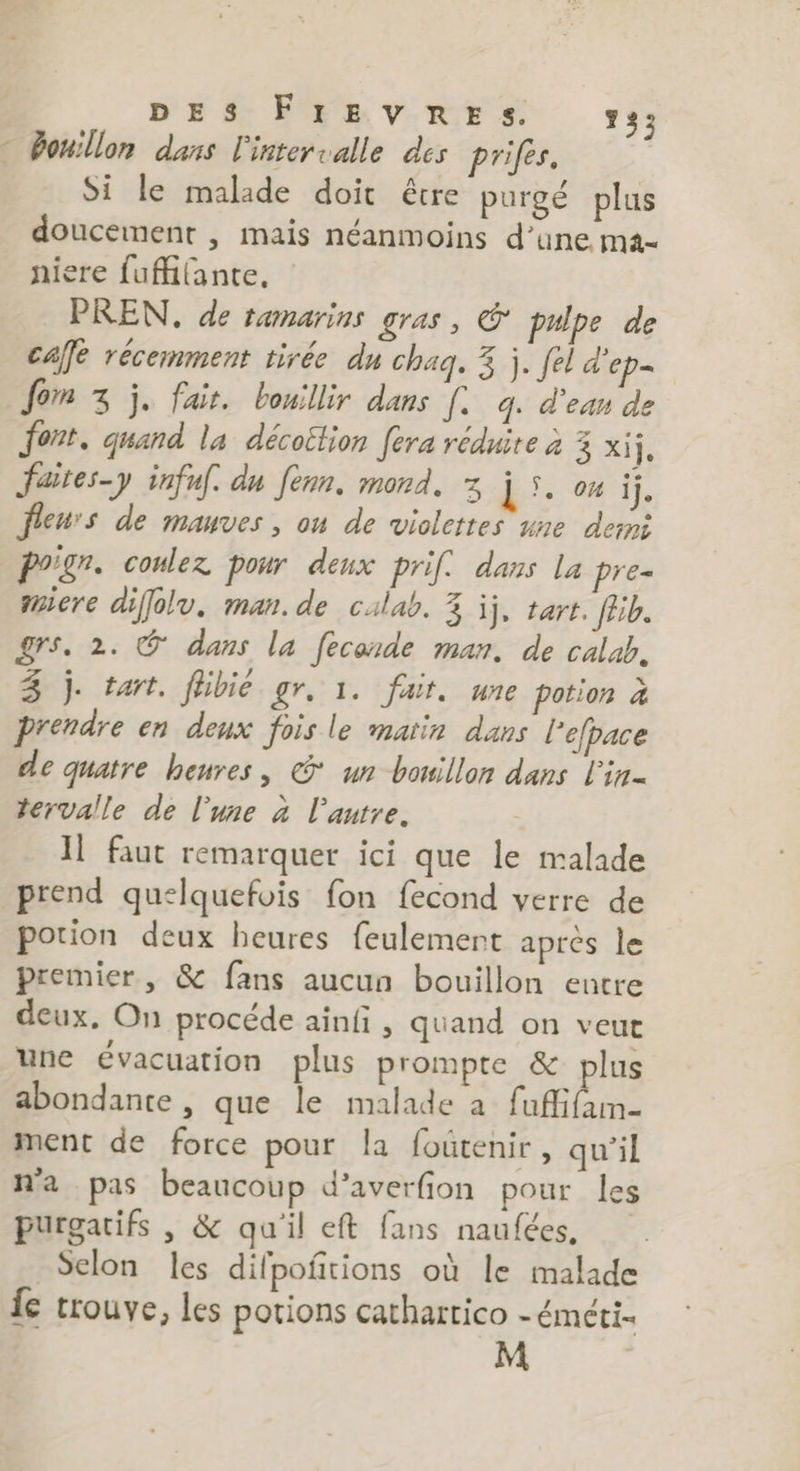 DES FIEVRES. 133
bouillon dans l'intervalle des priſes.
Si le malade doit être purgé plus
doucement, mais néanmoins d'une ma-
niere ſuffiſante.
PREN. de tamarins gras, & pulpe de
caſſe récemment tirée du chaq. ℥ j. ſel d'ep-
ſom ʒ j. fait. bouillir dans ſ. q. d'eau de
font. quand la décoction ſera réduite à ℥ xij.
faites-y infuſ. du ſenn. mond. ʒ j ſ. ou ij.
fleurs de mauves, ou de violettes une demi
poign. coulez pour deux priſ. dans la pre-
miere diſſolv. man. de calab. ℥ ij. tart. ſtib.
grs. 2. & dans la ſeconde man. de calab.
℥ j. tart. ſtibié gr. 1. fait. une potion à
prendre en deux fois le matin dans l'eſpace
de quatre heures, & un bouillon dans l'in-
tervalle de l'une à l'autre.
Il faut remarquer ici que le malade
prend quelquefois ſon ſecond verre de
potion deux heures ſeulement après le
premier, & ſans aucun bouillon entre
deux. On procéde ainſi, quand on veut
une évacuation plus prompte & plus
abondante, que le malade a ſuffiſam-
ment de force pour la ſoûtenir, qu'il
n'a pas beaucoup d'averſion pour les
purgatifs, & qu'il eſt ſans nauſées.
Selon les diſpoſitions où le malade
ſe trouve, les potions cathartico-éméti-
M